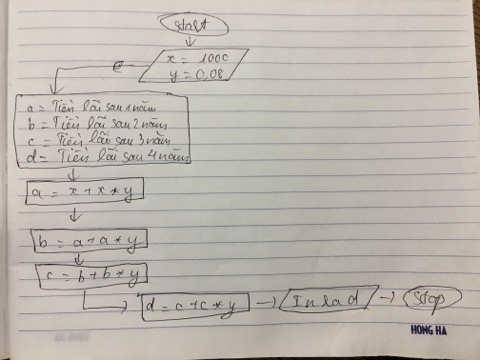 Start
x = 1000
y = 0.08
a = Tiền lãi sau 1 năm
b = Tiền lãi sau 2 năm
c = Tiền lãi sau 3 năm
d = Tiền lãi sau 4 năm
a = x + x * y
b = a + a * y
c = b + b * y
d = c + c * y
In ra d
Stop
HONG HA